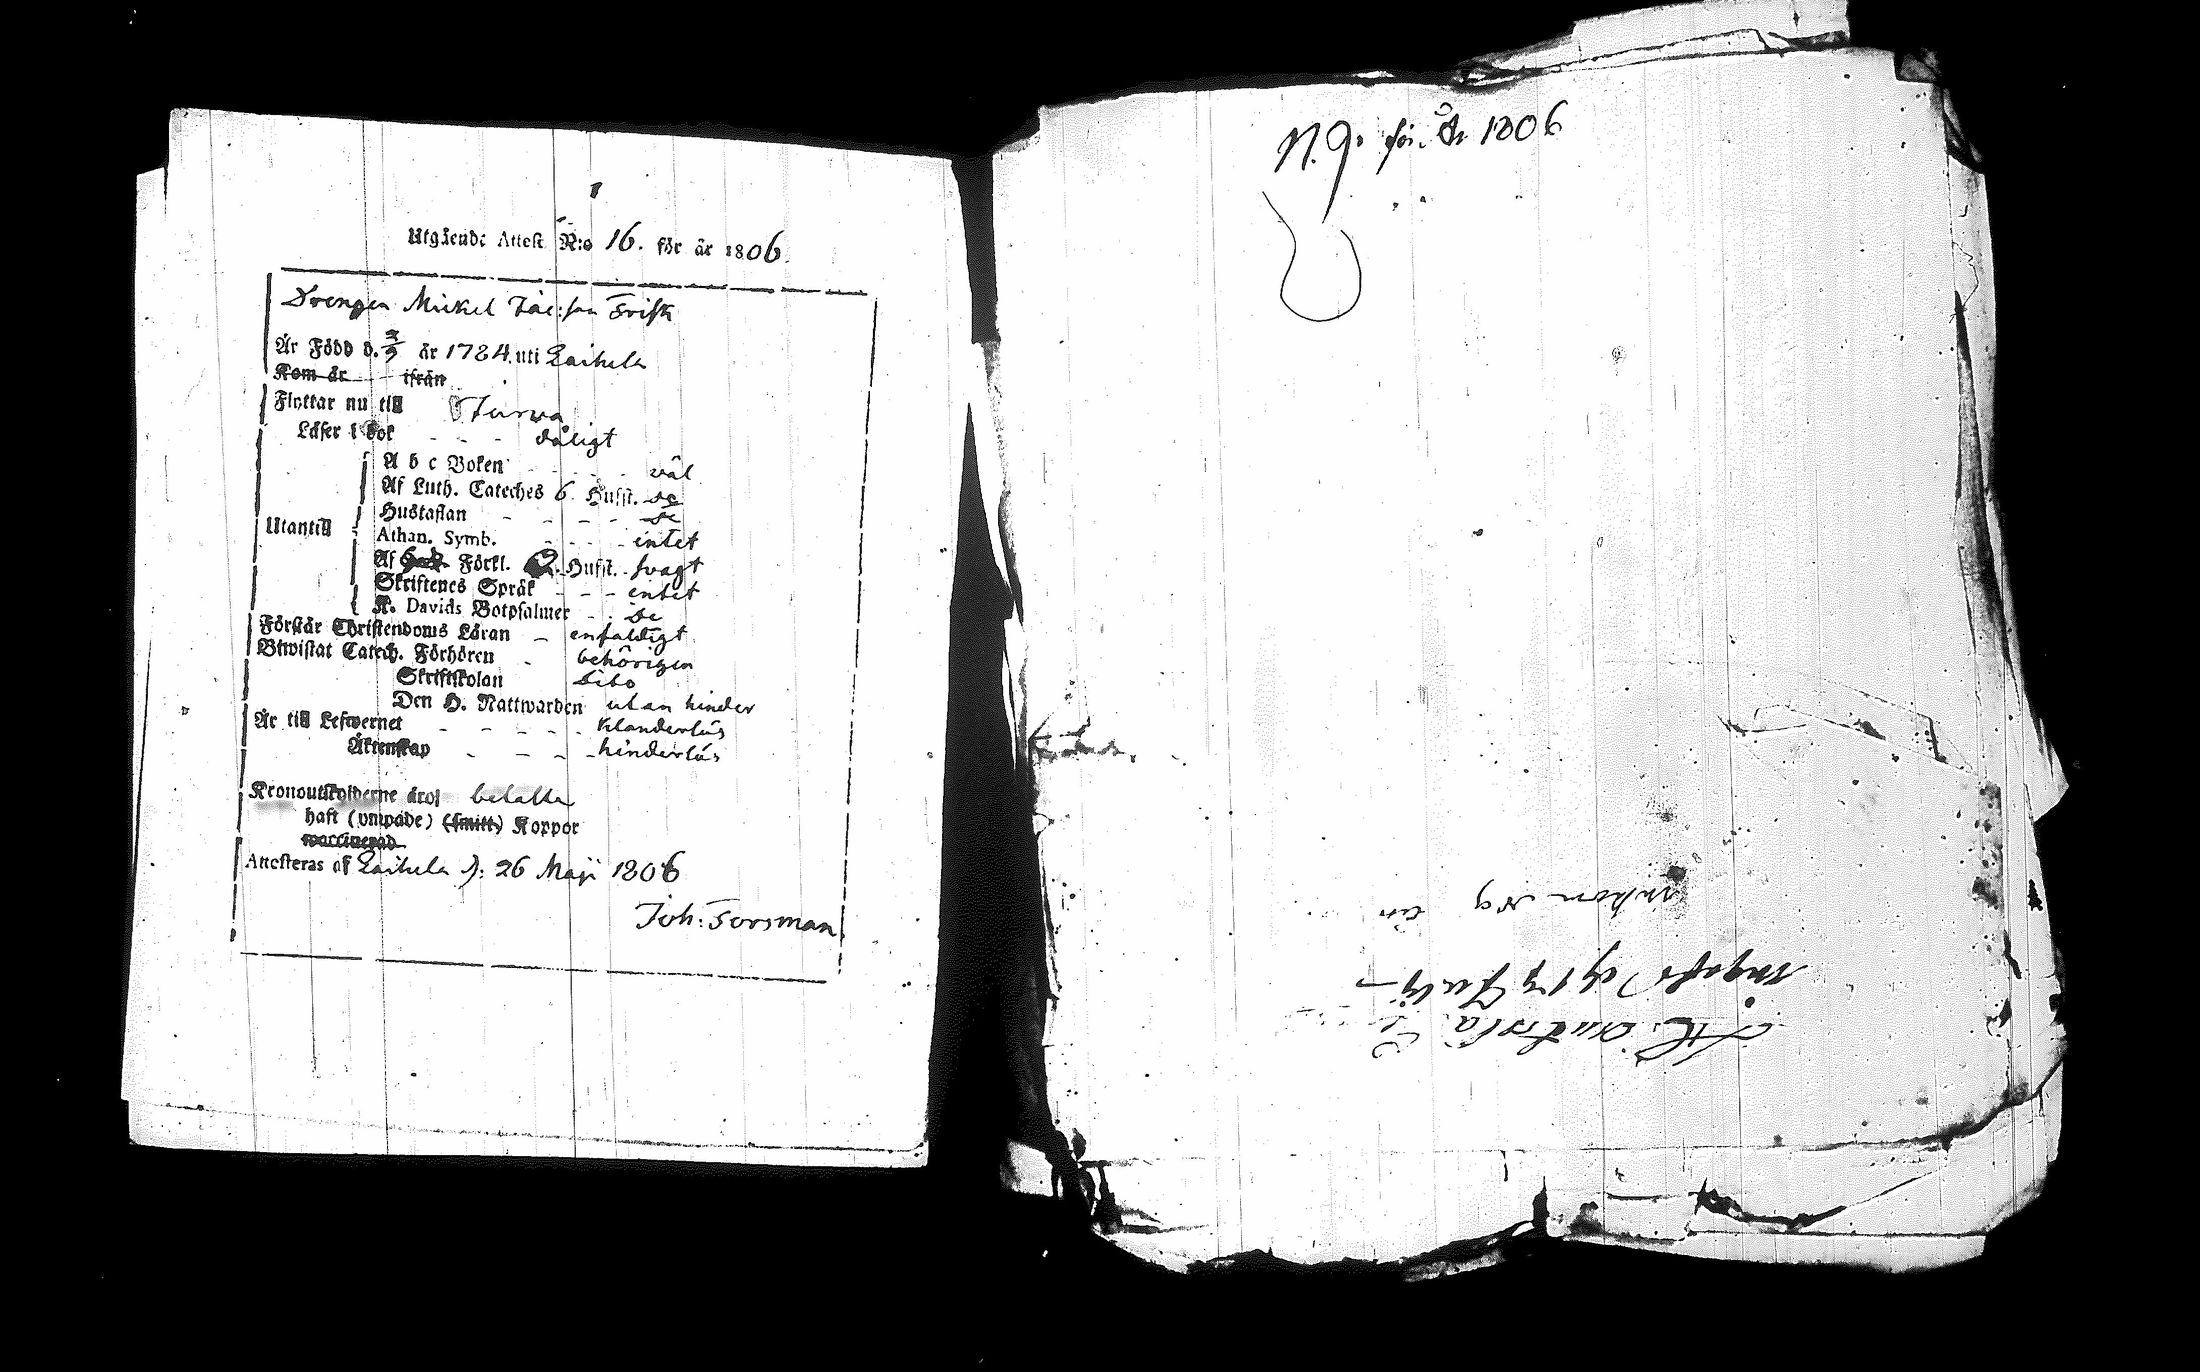 Utgående Attest N:o 16. för år 1806.
Drengen Mickel Jac:son Frisk
Är Född d. 2/9 år 1784. uti Laihela
Kom år ifrån
Flyttar nu till Storna
Läser i bok - - - dåligt
A b c Boken - - - - wäl
Af Luth. Cateches 6 Hufst. do
Hustaflan - - - - do
Utantill
Athan. Symb. - - - - intet
Af Förkl. Hufst. swagt
Skriftenes Språk - - - intet
K. Davids Botpsalmer - - do
Förstår Christendoms Läran - enfaldigt
Biwistat Catech. Förhören - behörigen
Skriftskolan dito
Den H. Nattwarden utan hinder
Är till Lefwernet - - - - - klanderlös
Äktenskap - - - - hinderlös
Kronoutskylderne äro betalta
haft (ympade) (smitt.) Koppor
waccinerad
Attesteras af Laihela d: 26 Maji 1806
Joh: Forsman
N. 9. för år 1806